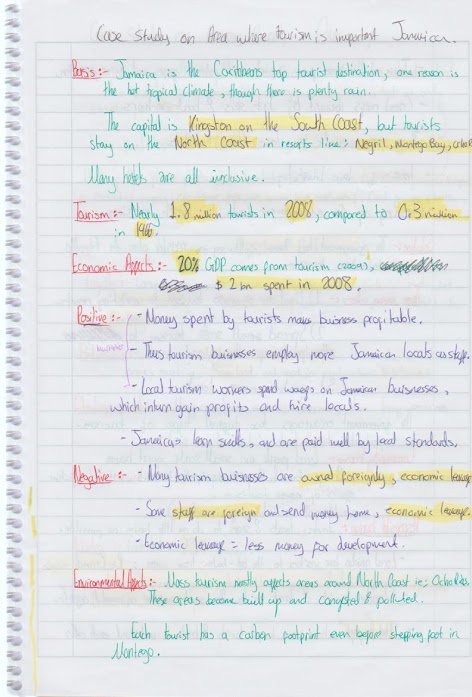 Case Study on Area where tourism is important Jamaica.
Basis:- Jamaica is the Caribbeans top tourist destination, one reason is
the hot tropical climate, though there is plenty rain.
The capital is Kingston on the South Coast, but tourists
stay on the North Coast in resorts like: Negril, Montego Bay, Ocho R
Many hotels are all inclusive.
Tourism:- Nearly 1.8 million tourists in 2008, compared to 0.3 million
in
Economic Affects:- 20% GDP comes from tourism (2009),
$ 2 bn spent in 2008.
Positive:- - Money spent by tourists make buisness profitable.
- Thus tourism buisnesses employ more Jamaican locals as staff.
- Local tourism workers spend wages on Jamaican buisnesses,
which inturn gain profits and hire locals.
- Jamaicans learn skills, and are paid well by local standards.
Negative:- - Many tourism buisnesses are owned foreignly, economic leakage
- Some staff are foreign and send money home, economic leakage.
- Economic leakage = less money for development.
Environmental Affects:- Mass tourism mostly affects areas around North Coast ie; Ocho Rios.
These areas become built up and congested & polluted.
Each tourist has a carbon footprint even before stepping foot in
Montego.